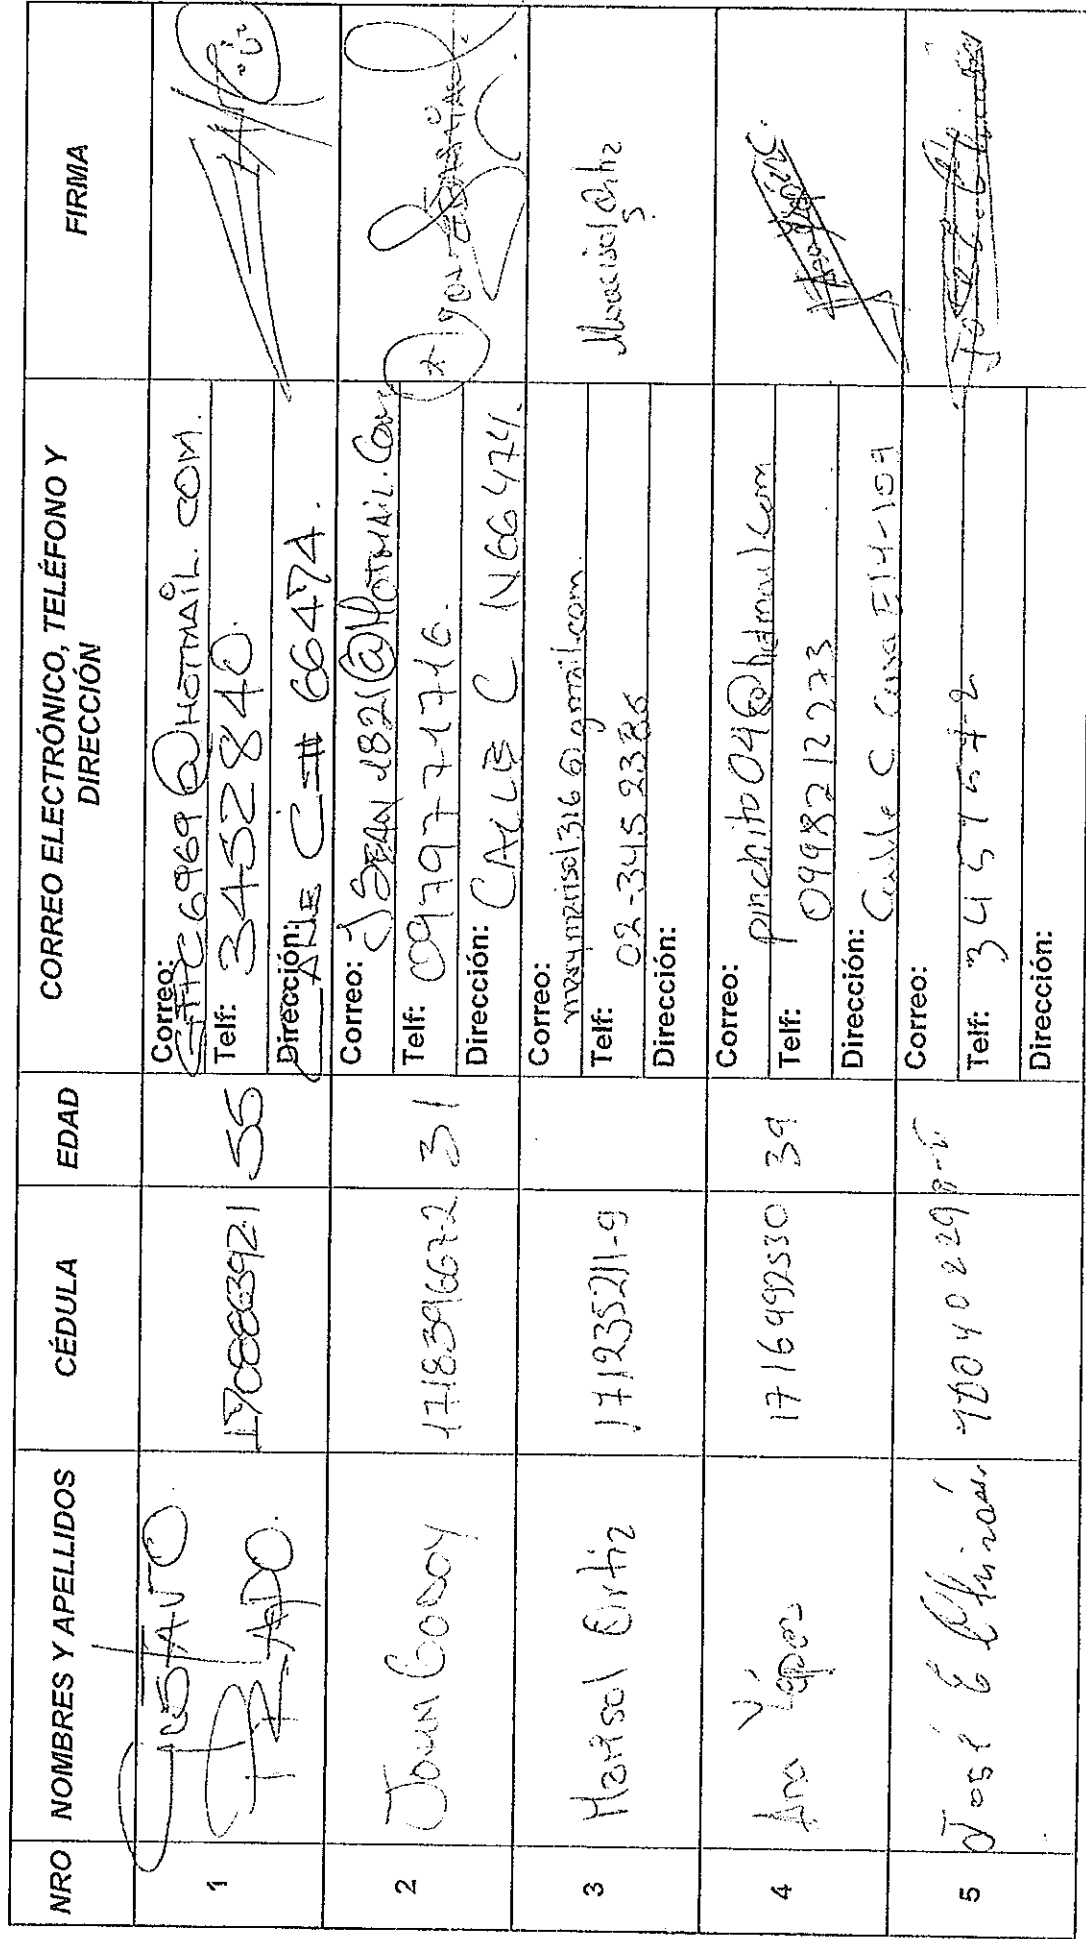 NRO NOMBRES Y APELLIDOS CÉDULA EDAD CORREO ELECTRÓNICO, TELÉFONO Y DIRECCIÓN FIRMA
1 GUSTAVO 55 Correo: @HOTMAIL.COM.
Telf: 3452840.
Dirección: CALLE C 66474.
2 171839667-2 31 Correo: JEAN1821@HOTMAIL.COM
Telf: 0979771716.
Dirección: CALLE C N66474.
3 Marisol Ortiz 171235211-9 Correo: marymarisol316@gmail.com
Telf: 02-3452386
Dirección:
Marisol Ortiz S
4 Ana Yépez 1716492530 39 Correo: pinchito04@hotmail.com
Telf: 0998212273
Dirección: Calle C Casa E14-109
5 José E Correo:
Telf: 3457572
Dirección: